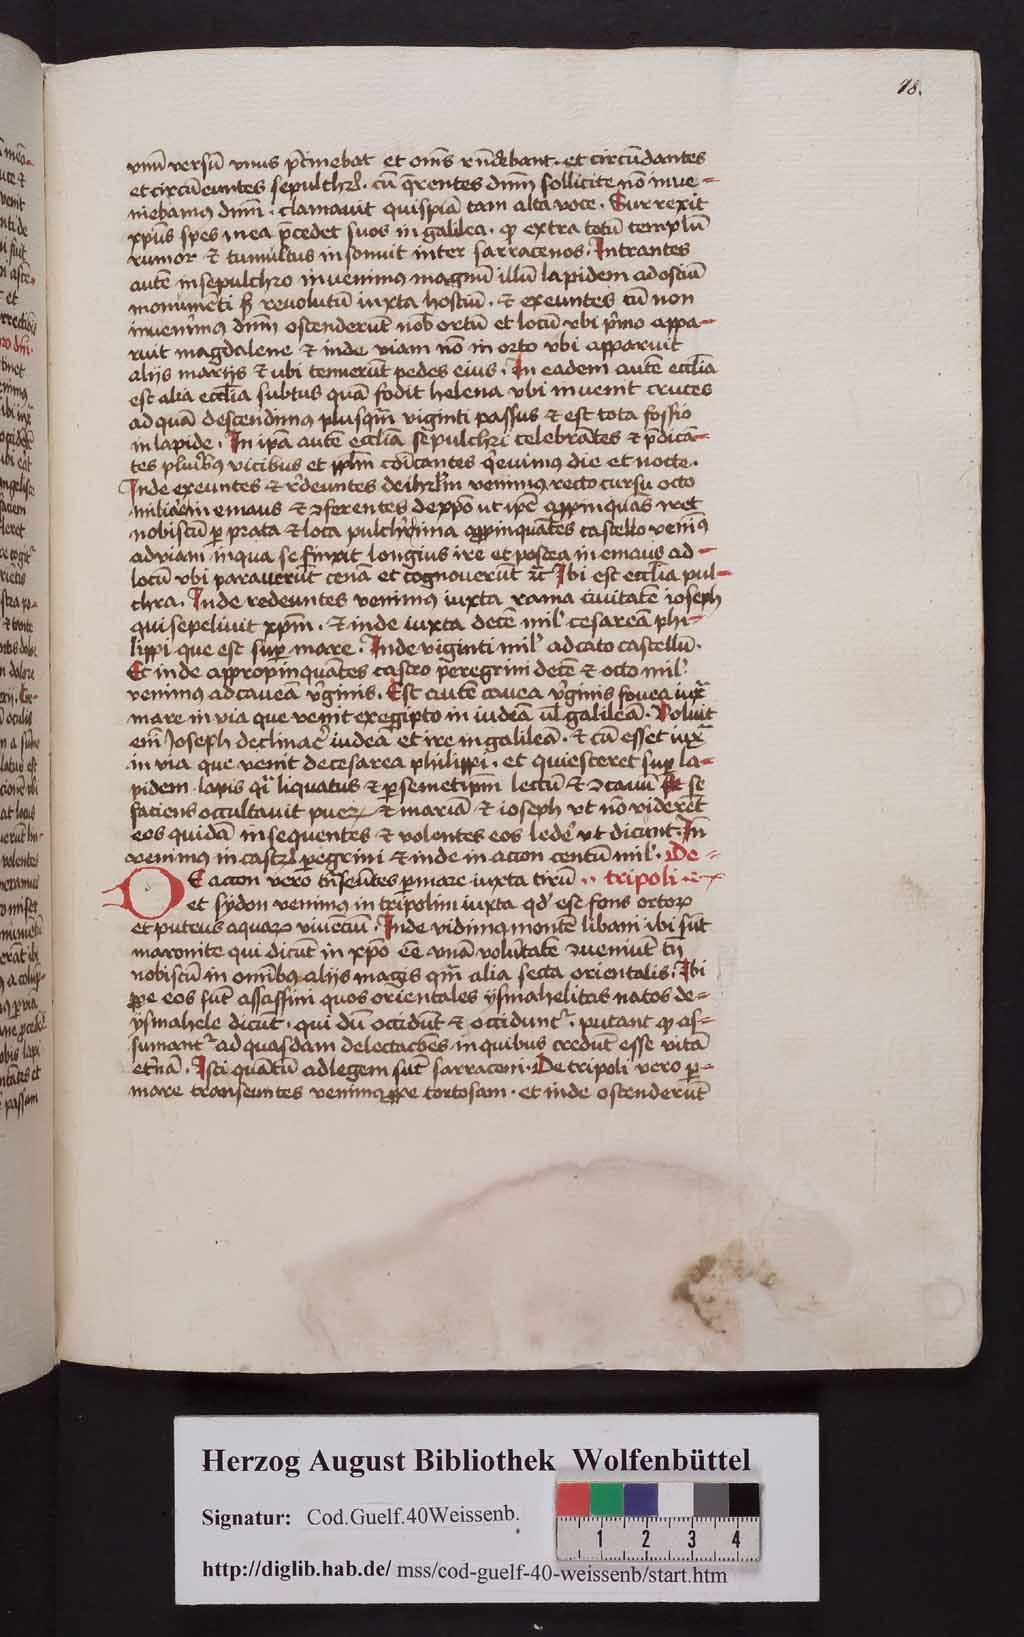 78.
vnū versū vnus p̄cinebat et om̄s rn̄debant · et circūdantes
et circūeuntes sepulchꝝ · cū q̄rentes dnm̄ sollicite nō inue-
niebamus dnm̄ · clamauit quispiā tam alta voce · Surrexit
xpūs spes mea p̄cedet suos in galilea · ꝙ extra totū templū
rumor & tumultus insonuit inter sarracenos · Intrantes
autē in sepulchro inuenimus magnū illū lapidem ad ostiū
monumēti reuolutū iuxta hostiū · & exeuntes cū non
inuenimus dnm̄ ostenderūt nob̄ ortū et locū vbi p̄mo appa-
ruit magdalene & inde viam nō in orto vbi apparuit
alijs marijs & ubi tenuerūt pedes eius · In eadem autē eccl̄ia
est alia eccl̄ia subtus quā fodit helena vbi inuenit cruces
ad quā descendimus plusqm̄ viginti passus & est tota fossio
in lapide · In ip̄a autē eccl̄ia sepulchri celebrātes & p̄dicā-
tes pluribꝰ vicibus et pplm̄ cōicantes q̄euimus die et nocte ·
Inde exeuntes & r̄deuntes de ihrl̄m venimus recto cursu octo
miliaria in emaus & ꝯferentes de xpō ut ip̄e appinquās iret
nobiscū ꝑ prata & loca pulch̄rima appinquātes castello venimꝰ
ad viam in qua se finxit longius ire et postea in emaus ad
locū vbi parauerūt cenā et cognouerūt &c̄ Ibi est eccl̄ia pul-
chra · Inde redeuntes venimus iuxta rama ciuitatē ioseph
qui sepeliuit xpm̄ · & inde iuxta decē mil̄ cesareā phi-
lippi que est suꝑ mare · Inde viginti mil̄ ad cato castellū ·
Et inde appropinquātes castro peregrini decē & octo mil̄
venimus ad caueā v̄ginis · Est autē cauea v̄ginis fouea iux̄
mare in via que venit ex egipto in iudeā ul̄ galileā · Voluit
em̄ Joseph declinar̄ iudeā et ire in galileā · & cū esset iux̄
in via que venit de cesarea philippi · et quiesceret suꝑ la-
pidem · lapis q̄i liquatus & ꝑ semetipm̄ lectū & ꝯcauū se
faciens occultauit pueꝝ & mariā & ioseph vt nō viderēt
eos quidā insequentes & volentes eos leder̄ vt dicunt · In
venimus in castꝝ pegrini & inde in accon centū mil̄ · De
DE accon vero trāseūtes ꝑ mare iuxta tirū ·· tripoli ··
et sydon venimus in tripolim iuxta qd̄ est fons ortoꝝ
et puteus aquaꝝ viuentiū · Inde vidimus montē libani ibi sūt
maronite qui dicūt in xpō eē vnā volūtatē ꝯueniūt tn̄
nobiscū in omībꝰ alijs magis qm̄ alia secta orientalis · Ibi
ꝓpe eos sūt assassini quos orientales ysmahelitas natos de-
ysmahele dicūt · qui dū occidūt & occidunt᷑ · putant ꝙ as-
sumant᷑ ad quasdam delectac̄oēs in quibus credūt esse vitā
et̄nā · Isti quātū ad legem sūt sarraceni · De tripoli vero ꝑ-
mare transeuntes venimus ꝓpe tortosam · et inde ostenderūt
Herzog August Bibliothek Wolfenbüttel
Signatur: Cod.Guelf.40Weissenb.
1 2 3 4
http://diglib.hab.de/ mss/cod-guelf-40-weissenb/start.htm